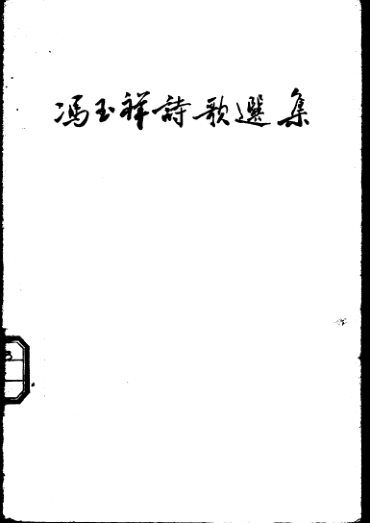 冯玉祥詩歌選集